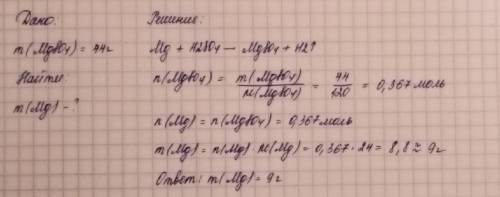 Дано:
m(MgSO4) = 44г
Найти:
m(Mg) - ?
Решение:
Mg + H2SO4 — MgSO4 + H2↑
n(MgSO4) = m(MgSO4) / M(MgSO4) = 44 / 120 = 0,367 моль
n(Mg) = n(MgSO4) = 0,367 моль
m(Mg) = n(Mg) · M(Mg) = 0,367 · 24 = 8,8 ≈ 9г
Ответ: m(Mg) = 9г